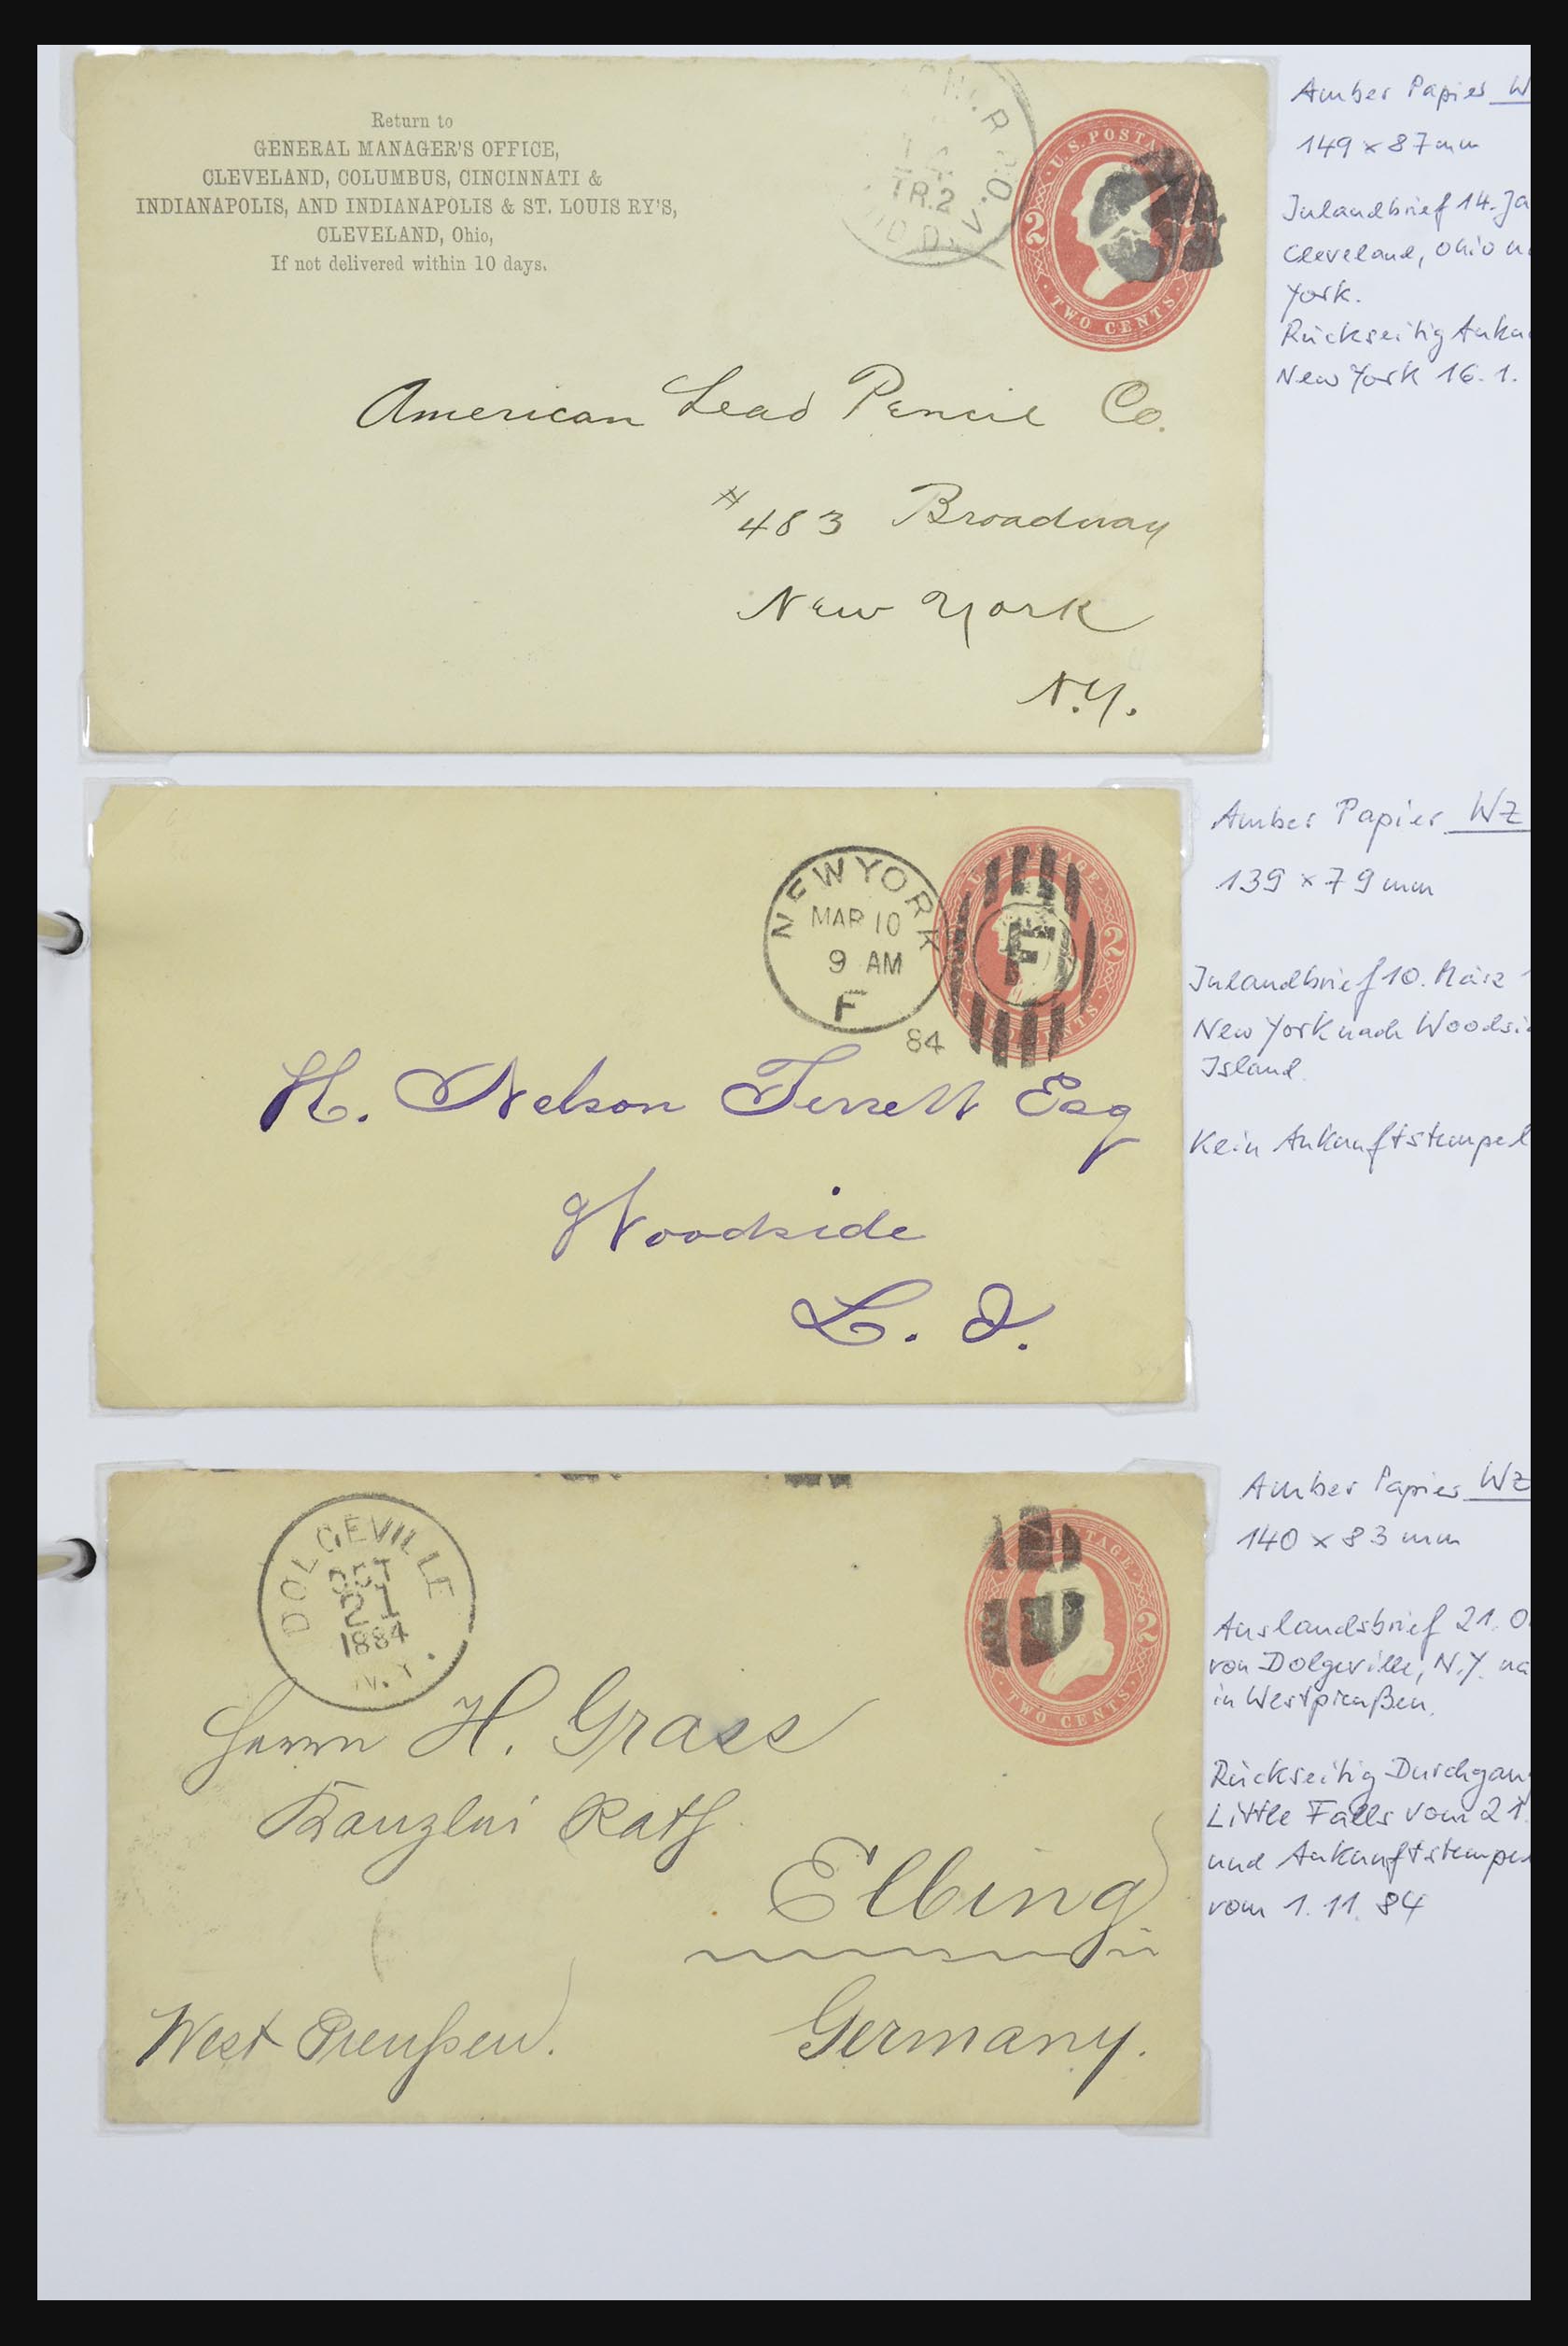 Return to
GENERAL MANAGER'S OFFICE,
CLEVELAND, COLUMBUS, CINCINNATI &
INDIANAPOLIS, AND INDIANAPOLIS & ST. LOUIS RY'S,
CLEVELAND, Ohio,
If not delivered within 10 days.
TR.2
U.S. POSTA
2
TWO CENTS
American Lead Pencil Co.
#483 Broadway
New York
N.Y.
Amber Papier W
149 x 87mm
Inlandbrief 14. Ja
Cleveland, Ohio n
York.
Rückseitig Anku
New York 16. 1.
NEW YORK
MAR 10
9 AM
F
84
F
2
H. Nelson Terrett Esq
Woodside
L. I.
Amber Papier WZ
139 x 79mm
Inlandbrief 10. März 1
New York nach Woodsi
Island.
Kein Ankunftstempel
DOLGEVILLE
OCT
21
1884
N.Y.
2
TWO CENTS
Herrn H. Grass
Kanzlei Rath
Elbing
in
West Preußen.
Germany.
Amber Papier WZ
140 x 83mm
Auslandsbrief 21. O
von Dolgeville, N.Y. na
in Westpreußen.
Rückseitig Durchgan
Little Falls vom 21.
und Ankunftstempe
vom 1. 11. 84